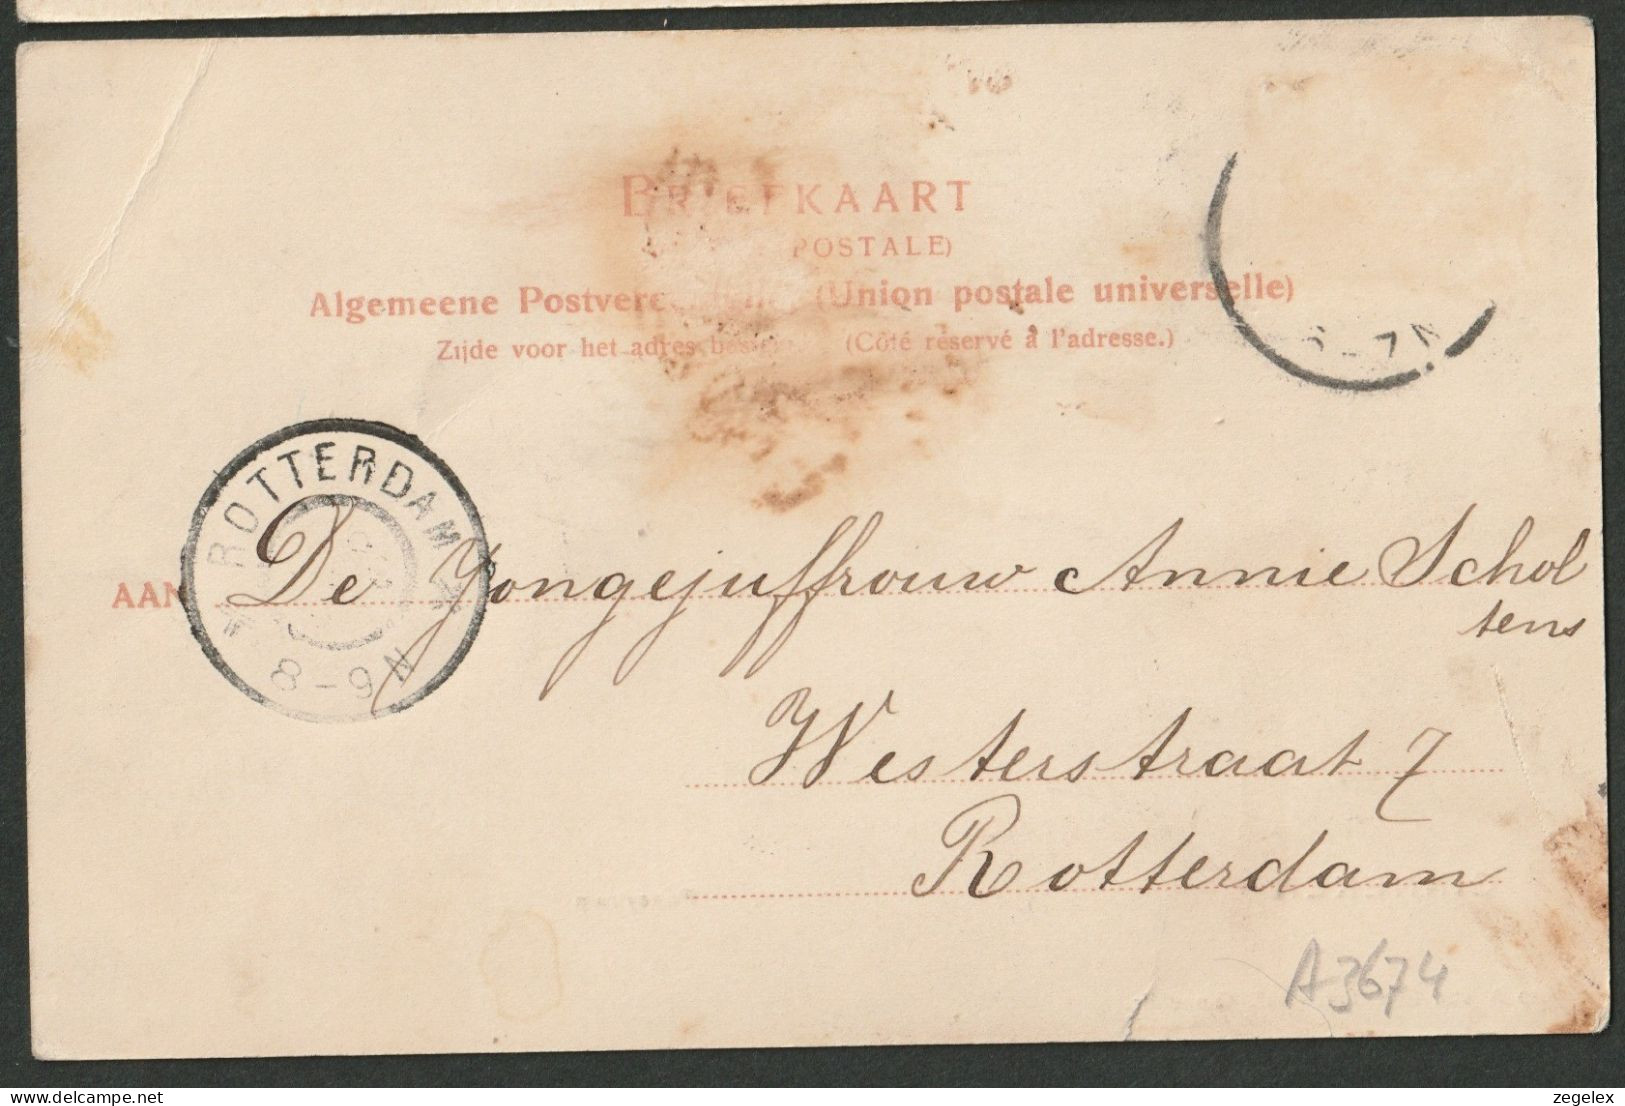 BRIEFKAART
POSTALE)
Algemeene (Union postale universelle)
Zijde voor het adres (Côté réservé à l'adresse.)
6-7N
ROTTERDAM
8-9N
AAN De Jongejuffrouw Annie Schol
tens
Westerstraat 7
Rotterdam
A3674
delcampe.net
zegelex